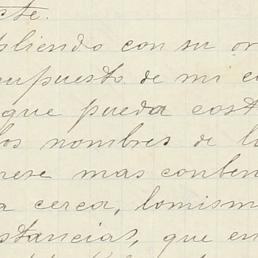 cte.
pliendo con su or
upuesto de mi c
que pueda cost
los nombres de l
rese mas conben
a cerca, lomism
stancias, que en